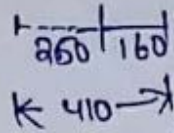 250 160
410